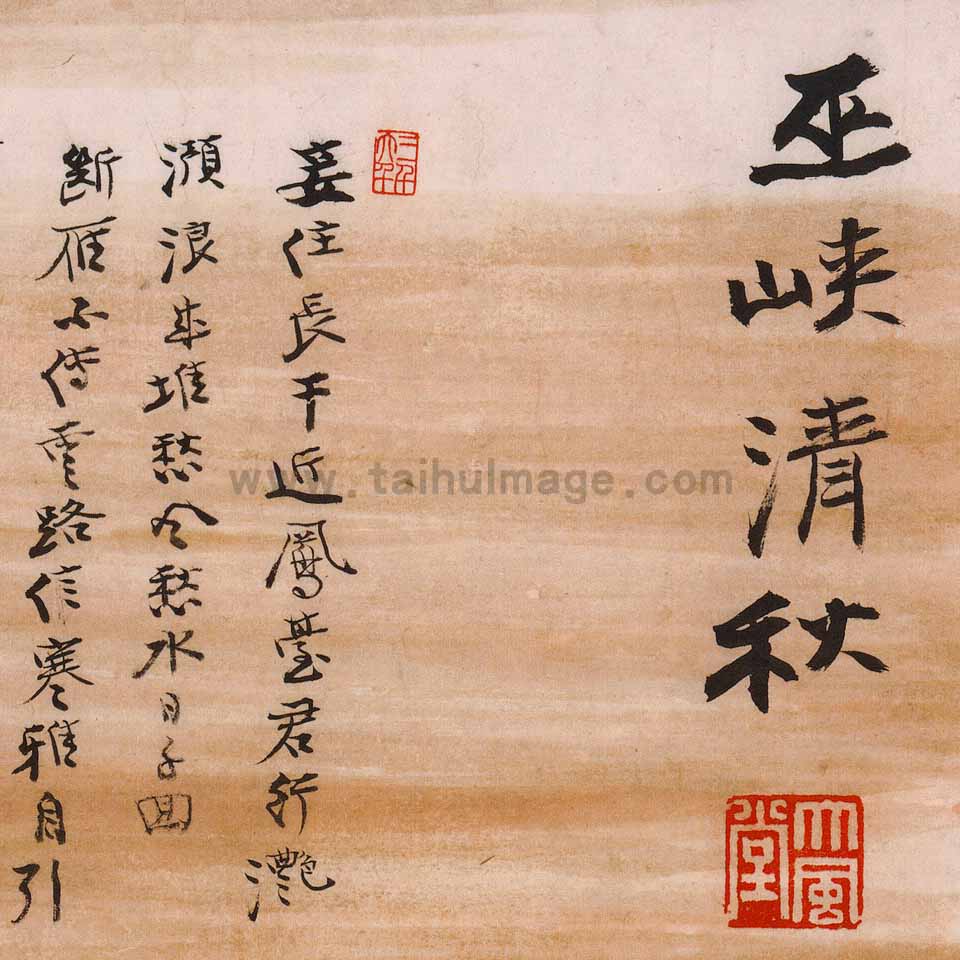 巫峽清秋
大風堂
妾住長干近鳳臺君行灔
澦浪成堆愁風愁水日千回
斷雁不傳雲路信寒雅自引
www.taihuImage.com